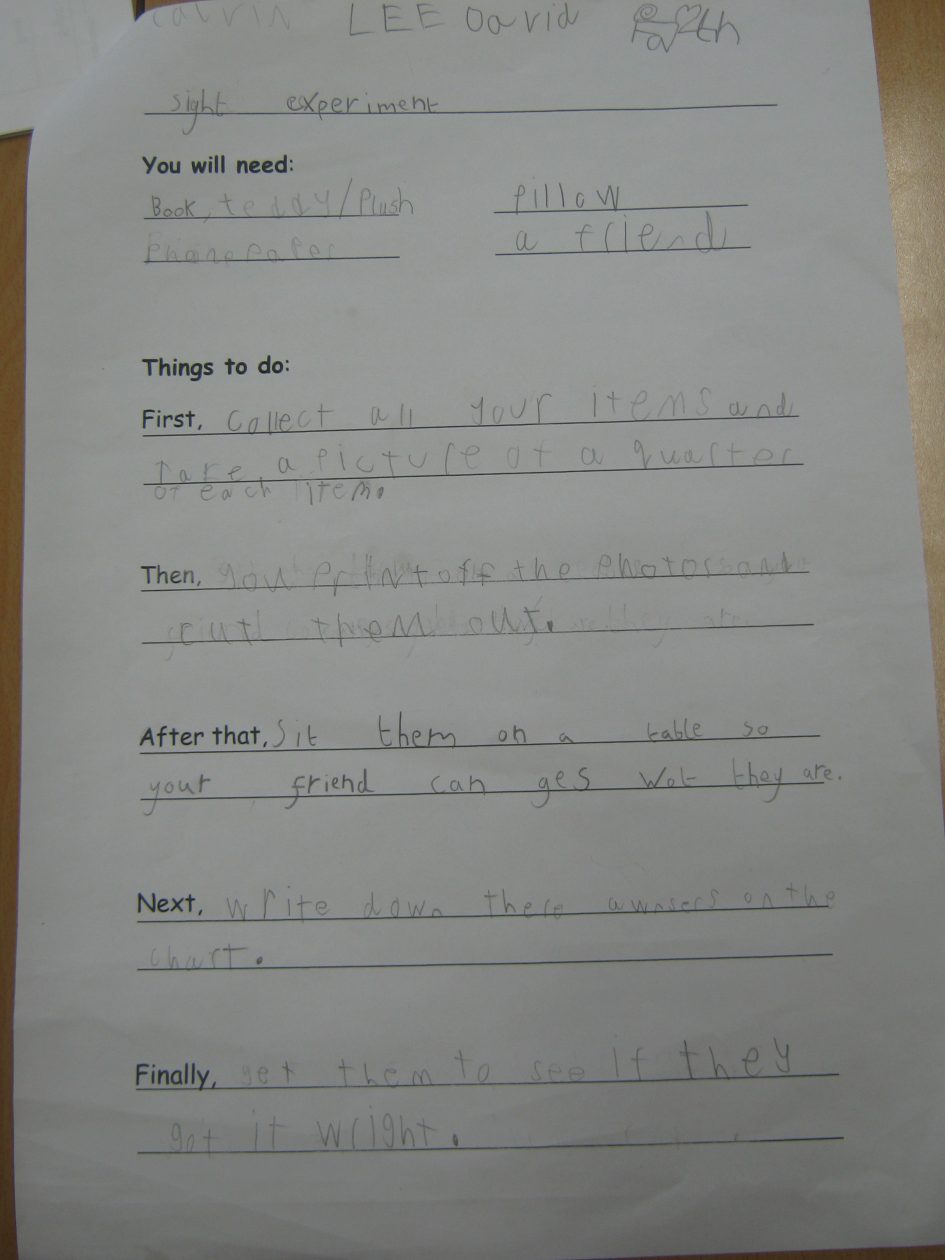 Calvin LEE David Faith
sight experiment
You will need:
Book, teddy/Plush pillow
Phone paper a friend
Things to do:
First, collect all your items and
Take a picture of a quarter
of each item.
Then, you print off the photos and
cut them out.
After that, Sit them on a table so
your friend can ges wot they are.
Next, write down there awnsers on the
chart.
Finally, get them to see if they
got it wright.